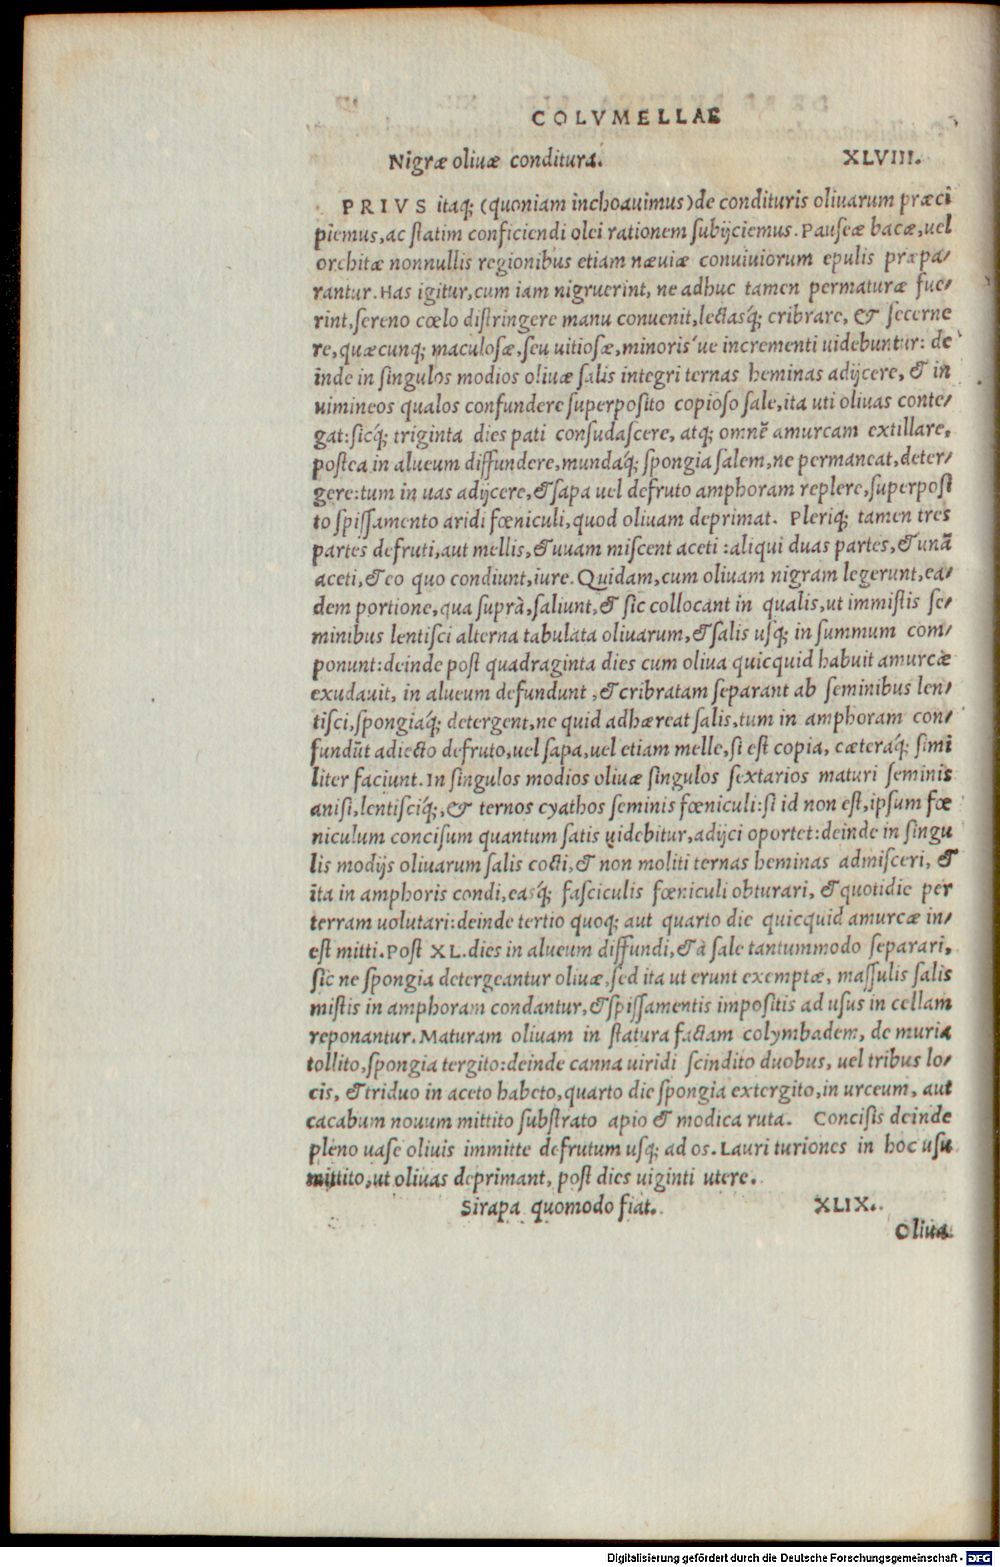 COLVMELLAE
Nigræ oliuæ conditura. XLVIII.
PRIVS itaq; (quoniam inchoauimus)de condituris oliuarum præci
piemus,ac ſtatim conficiendi olei rationem ſubijciemus. Pauſeæ bacæ,uel
orchitæ nonnullis regionibus etiam næuiæ conuiuiorum epulis præpa/
rantur. Has igitur,cum iam nigruerint, ne adhuc tamen permaturæ fue/
rint,ſereno cœlo diſtringere manu conuenit,lectasq́; cribrare, & ſecerne
re,quæcunq; maculoſæ,ſeu uitioſæ,minoris'ue incrementi uidebuntur: de
inde in ſingulos modios oliuæ ſalis integri ternas heminas adijcere, & in
uimineos qualos confundere ſuperpoſito copioſo ſale,ita uti oliuas conte/
gat:ſicq́; triginta dies pati conſudaſcere, atq; omnẽ amurcam extillare,
poſtea in alueum diffundere,mundaq́; ſpongia ſalem,ne permaneat,deter/
gere:tum in uas adijcere,& ſapa uel defruto amphoram replere,ſuperpoſi
to ſpiſſamento aridi fœniculi,quod oliuam deprimat. Pleriq; tamen tres
partes defruti,aut mellis,& unam miſcent aceti :aliqui duas partes,& unã
aceti,& eo quo condiunt,iure. Quidam,cum oliuam nigram legerunt,ea/
dem portione,qua suprà,ſaliunt,& ſic collocant in qualis,ut immiſtis ſe/
minibus lentiſci alterna tabulata oliuarum,& ſalis uſq; in ſummum com/
ponunt:deinde poſt quadraginta dies cum oliua quicquid habuit amurcæ
exudauit, in alueum defundunt ,& cribratam ſeparant ab ſeminibus len/
tiſci,ſpongiaq́; detergent,ne quid adhæreat ſalis,tum in amphoram con/
fundũt adiecto defruto,uel ſapa,uel etiam melle,ſi eſt copia, cæteraq́; ſimi
liter faciunt. In ſingulos modios oliuæ ſingulos ſextarios maturi ſeminis
aniſi,lentiſciq́;,& ternos cyathos ſeminis fœniculi:ſi id non eſt,ipſum fœ
niculum conciſum quantum ſatis uidebitur,adijci oportet:deinde in ſingu
lis modijs oliuarum ſalis cocti,& non moliti ternas heminas admiſceri, &
ita in amphoris condi,easq́; faſciculis fœniculi obturari, & quotidie per
terram uolutari:deinde tertio quoq; aut quarto die quicquid amurcæ in/
eſt mitti. Poſt XL. dies in alueum diffundi,& à ſale tantummodo ſeparari,
ſic ne ſpongia detergeantur oliuæ,ſed ita ut erunt exemptæ, maſſulis ſalis
miſtis in amphoram condantur,& ſpiſſamentis impoſitis ad uſus in cellam
reponantur. Maturam oliuam in ſtatura factam colymbadem, de muria
tollito,ſpongia tergito:deinde canna uiridi ſcindito duobus, uel tribus lo/
cis, & triduo in aceto habeto,quarto die ſpongia extergito,in urceum, aut
cacabum nouum mittito ſubſtrato apio & modica ruta. Conciſis deinde
pleno uaſe oliuis immitte defrutum uſq; ad os. Lauri turiones in hoc uſu
mittito,ut oliuas deprimant, poſt dies uiginti utere.
Sirapa quomodo fiat. XLIX.
Oliua
Digitalisierung gefördert durch die Deutsche Forschungsgemeinschaft - DFG